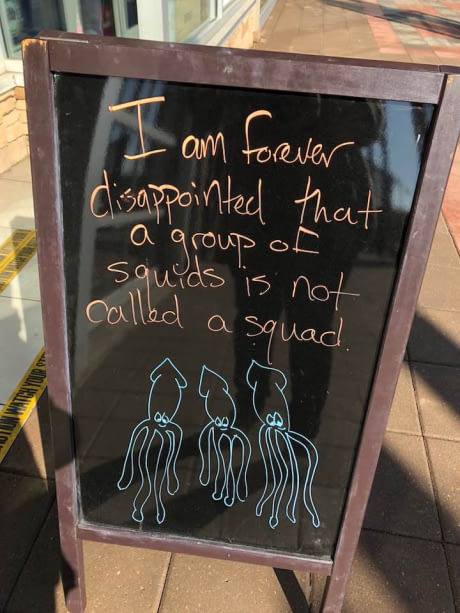 I am forever
disappointed that
a group of
squids is not
called a squad.
WATCH YOUR